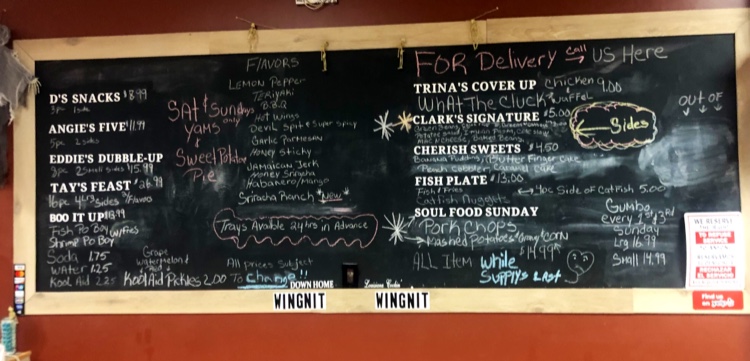 D'S SNACKS $8.99
3pc 1side
ANGIE'S FIVE $11.99
5pc 2 sides
EDDIE'S DUBBLE-UP
2 small sides $15.99
TAY'S FEAST $26.99
16pc 4 lrg sides 2 flavors
BOO IT UP
Fish Po Boy w/Fries
Shrimp Po Boy
Soda 1.75
Water 1.25
Kool Aid 2.25
SAT & Sundays
only
YAMS
&
Sweet Potatoe
Pie
Grape
Watermelon
Kool Aid Pickles 2.00
FLAVORS
Lemon Pepper
Teriyaki
B.B.Q
Hot Wings
Devil Spit & Super Spicy
Garlic Parmesan
Honey Stichy
Jamaican Jerk
Money Sriracha
Habanero/Mango
Sriracha Ranch New
Trays Avaible 24 hrs in Advance
All prices Subject
To Change!!
DOWN HOME
Louisiana Cookin'
WINGNIT
WINGNIT
FOR Delivery call US Here
TRINA'S COVER UP Chicken 9.00
What The Cluck & Waffel
CLARK'S SIGNATURE $5.00
Sides
CHERISH SWEETS $4.50
Banana Pudding Butter Finger Cake
Peach Cobbler Caramel Cake
FISH PLATE $13.00
Fish & Fries
4pc Side of Catfish 5.00
Catfish Nuggets
SOUL FOOD SUNDAY
Pork Chops
Mashed Potatoes Gravy Corn
$14.99
ALL Item while
Supplys Last
OUT OF
Gumbo
every 1st & 3rd
Sunday
Lrg 16.99
Small 14.99
WE RESERVE
THE RIGHT
TO REFUSE
SERVICE
Find us on
yelp